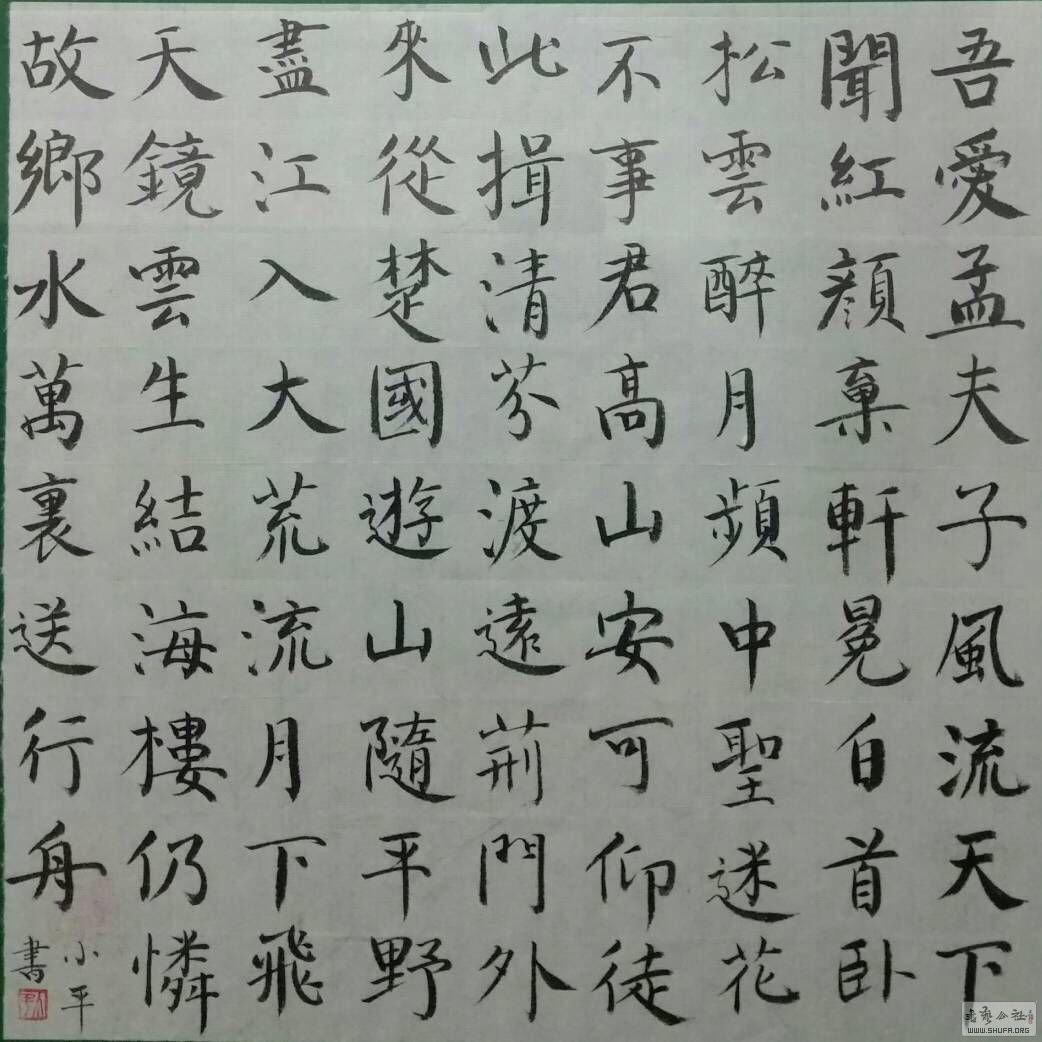 吾愛孟夫子風流天下
聞紅顏棄軒冕白首臥
松雲醉月頻中聖迷花
不事君高山安可仰徒
此揖清芬渡遠荊門外
來從楚國遊山隨平野
盡江入大荒流月下飛
天鏡雲生結海樓仍憐
故鄉水萬裏送行舟
小平
書
WWW.SHUFA.ORG